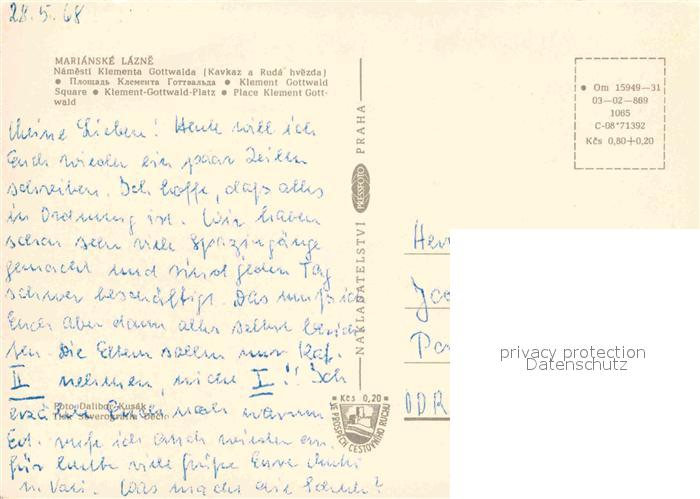 28.5.68
MARIÁNSKÉ LÁZNĚ
Náměstí Klementa Gottwalda (Kavkaz a Rudá hvězda)
● Площадь Клемента Готтвальда ● Klement Gottwald
Square ● Klement-Gottwald-Platz ● Place Klement Gott-
wald
Meine Lieben! Heute will ich
Euch wieder ein paar Zeilen
schreiben. Ich hoffe, daß alles
in Ordnung ist. Wir haben
schon sehr viele Spaziergänge
gemacht und sind jeden Tag
schwer beschäftigt. Das muß ich
Euch aber dann alles selbst berich-
ten. Die Eltern sollen nur Kat.
II nehmen, nicht I!! Ich
Euch noch warum
Evt. rufe ich Euch wieder an.
Für heute viele Grüße Eure
u. Vati. Was macht die Schule?
Foto Dalibor Kusák
Tisk Severografia Děčín
NAKLADATELSTVÍ PRESSFOTO PRAHA
● Om 15949—31
03—02—869
1065
C-08*71392
Kčs 0,80+0,20
Kčs 0,20
VE PROSPĚCH CESTOVNÍHO RUCHU
DDR
privacy protection
Datenschutz